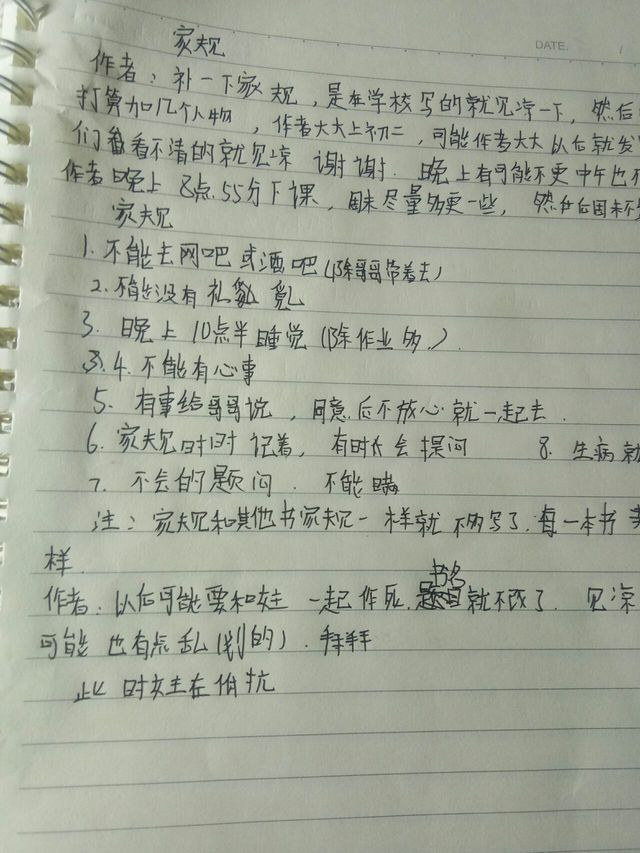 家规
DATE.
作者：补一下家规，是在学校写的就见凉一下，然后
打算加几个人物，作者大大上初二，可能作者大大以后就发
们看看不清的就见凉 谢谢. 晚上有可能不更中午也不
作者晚上8点.55分下课，周末尽量多更一些，然后周末不
家规
1. 不能去网吧或酒吧(除哥哥带着去)
2. 不能没有礼貌
3. 晚上10点半睡觉(除作业多.)
4. 不能有心事
5. 有事给哥哥说，同意后不放心就一起去.
6. 家规时时记着，有时会提问 8. 生病就
7. 不会的题问. 不能瞒
注：家规和其他书家规一样就不写了.每一本书
样.
作者：以后可能要和女主一起作死.书名就不改了. 见凉
可能也有点乱(别的). 拜拜
此时女主在